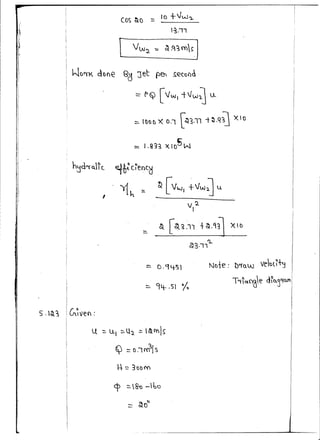 cos 20 = 10 + Vw₂ / 13.77
Vw₂ = 2.93 m/s
Work done By Jet per second
= ρQ [Vw₁ + Vw₂] u
= 1000 × 0.7 [23.77 + 2.93] × 10
= 1.833 × 10⁵ W
hydralic efficiency
ηh = 2 [Vw₁ + Vw₂] u / V₁²
= 2 [23.77 + 2.93] × 10 / 23.77²
= 0.9451
= 94.51 %
Note: Draw velocity
Triangle diagram
5.123 Given:
u = u₁ = u₂ = 12 m/s
Q = 0.7 m³/s
H = 300m
φ = 180 - 160
= 20°